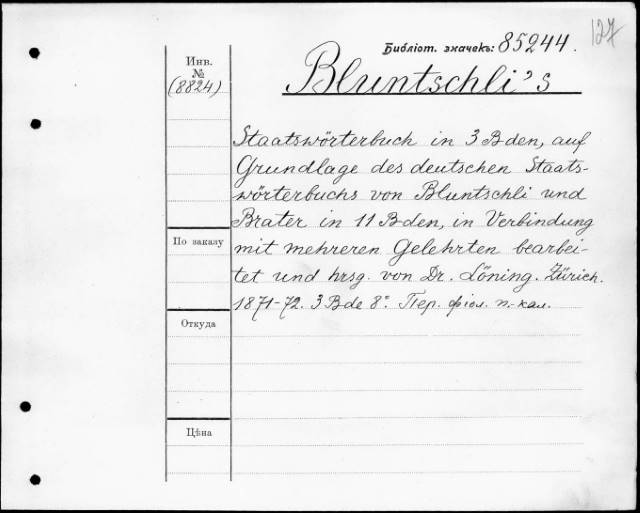 127
Библіот. значекъ: 85244.
Инв.
№
(8824)
Bluntschli's
Staatswörterbuch in 3 Bden, auf
Grundlage des deutschen Staats-
wörterbuchs von Bluntschli und
Brater in 11 Bden, in Verbindung
По заказу
mit mehreren Gelehrten bearbei-
tet und hrsg. von Dr. Löning. Zürich.
1871-72. 3 Bde 8°. Пер. фіол. п.-кал.
Откуда
Цѣна